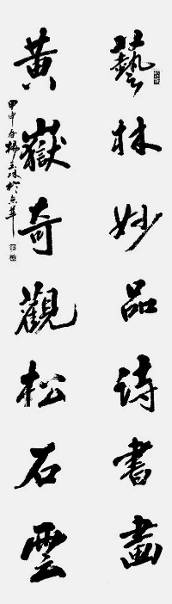 藝林妙品詩書畫
黃嶽奇觀松石雲
甲申春楊